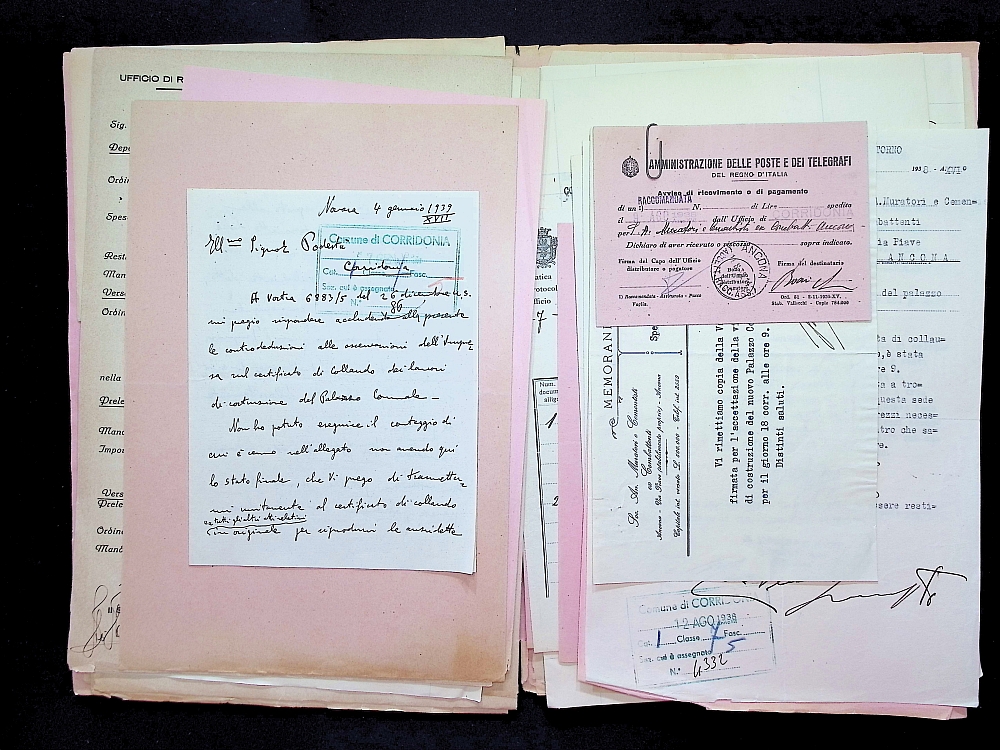 UFFICIO DI R
Sig.
Ordin
Spes
Rest
Mand
Vers
Ordin
nella
Prele
Mand
Impo
Vers
Prele
Ordin
Mand
Novara 4 gennaio 1939
XVII
Ill.mo Signor Podestà
Comune di CORRIDONIA
Corridonia
Cat. Fasc.
Sez. cui è assegnato
N.° 86
A Vostra 6883/5 del 26 dicembre u.s.
mi pregio rispondere accludendo alla presente
le controdeduzioni alle osservazioni dell'Impre
sa sul certificato di collaudo dei lavori
di costruzione del Palazzo Comunale -
Non ho potuto eseguire il conteggio di
cui è cenno nell'allegato non avendo qui
lo stato finale, che Vi prego di trasmetter
mi unitamente al certificato di collaudo
e tutti gli altri atti relativi
in originale per riprodurre le anzidette
AMMINISTRAZIONE DELLE POSTE E DEI TELEGRAFI
DEL REGNO D'ITALIA
Avviso di ricevimento o di pagamento
RACCOMANDATA
di un 1) N. di Lire spedita
il dall'Ufficio di CORRIDONIA
per S. A. Muratori e Cementisti ex Combatt. Ancona
Dichiaro di aver ricevuto o riscosso sopra indicato.
Firma del Capo dell'Ufficio
distributore o pagatore
Firma del destinatario
ANCONA
Bollo
dell'Ufficio
distributore
1) Raccomandata - Assicurata - Pacco
Vaglia.
Ord. 51 - 5-11-1935-XV.
Stab. Vallecchi - Copie 784.000
MEMORAN
Spe
Soc. An. Muratori e Cementisti
ex Combattenti
Ancona - Via Piave (stabilimento proprio) - Ancona
Capitale int. versato L. 500.000 - Telef. int. 2250
Vi rimettiamo copia della V
firmata per l'accettazione della v
di costruzione del nuovo Palazzo Co
per il giorno 18 corr. alle ore 9.
Distinti saluti.
TORNO
1938 - A.XVI°
A.Muratori e Cemen=
battenti
ia Piave
ANCONA
del palazzo
ta di collau=
o,è stata
re 9.
ta a tro=
questa sede
rezzi neces=
tro che sa=
e.
ssere resti=
Num.
docum
alleg
1
2
Comune di CORRIDONIA
12 AGO 1938
Cat. 1 Classe Fasc.
5
Sez. cui è assegnato
N.° 4332